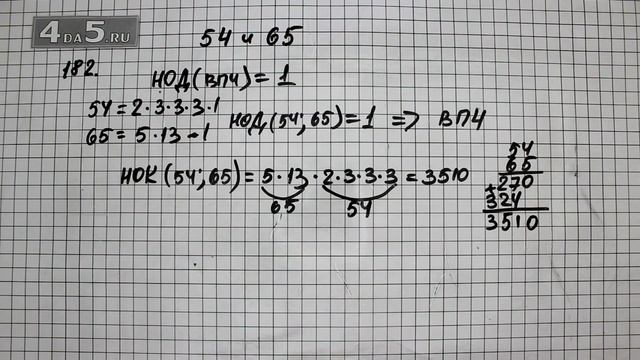 4DA5.RU
54 и 65
182.
НОД(ВПЧ)=1
54=2·3·3·3·1
65=5·13·1
НОД(54;65)=1 => ВПЧ
НОК(54;65)=5·13·2·3·3·3=3510
65
54
54
65
+270
324
3510